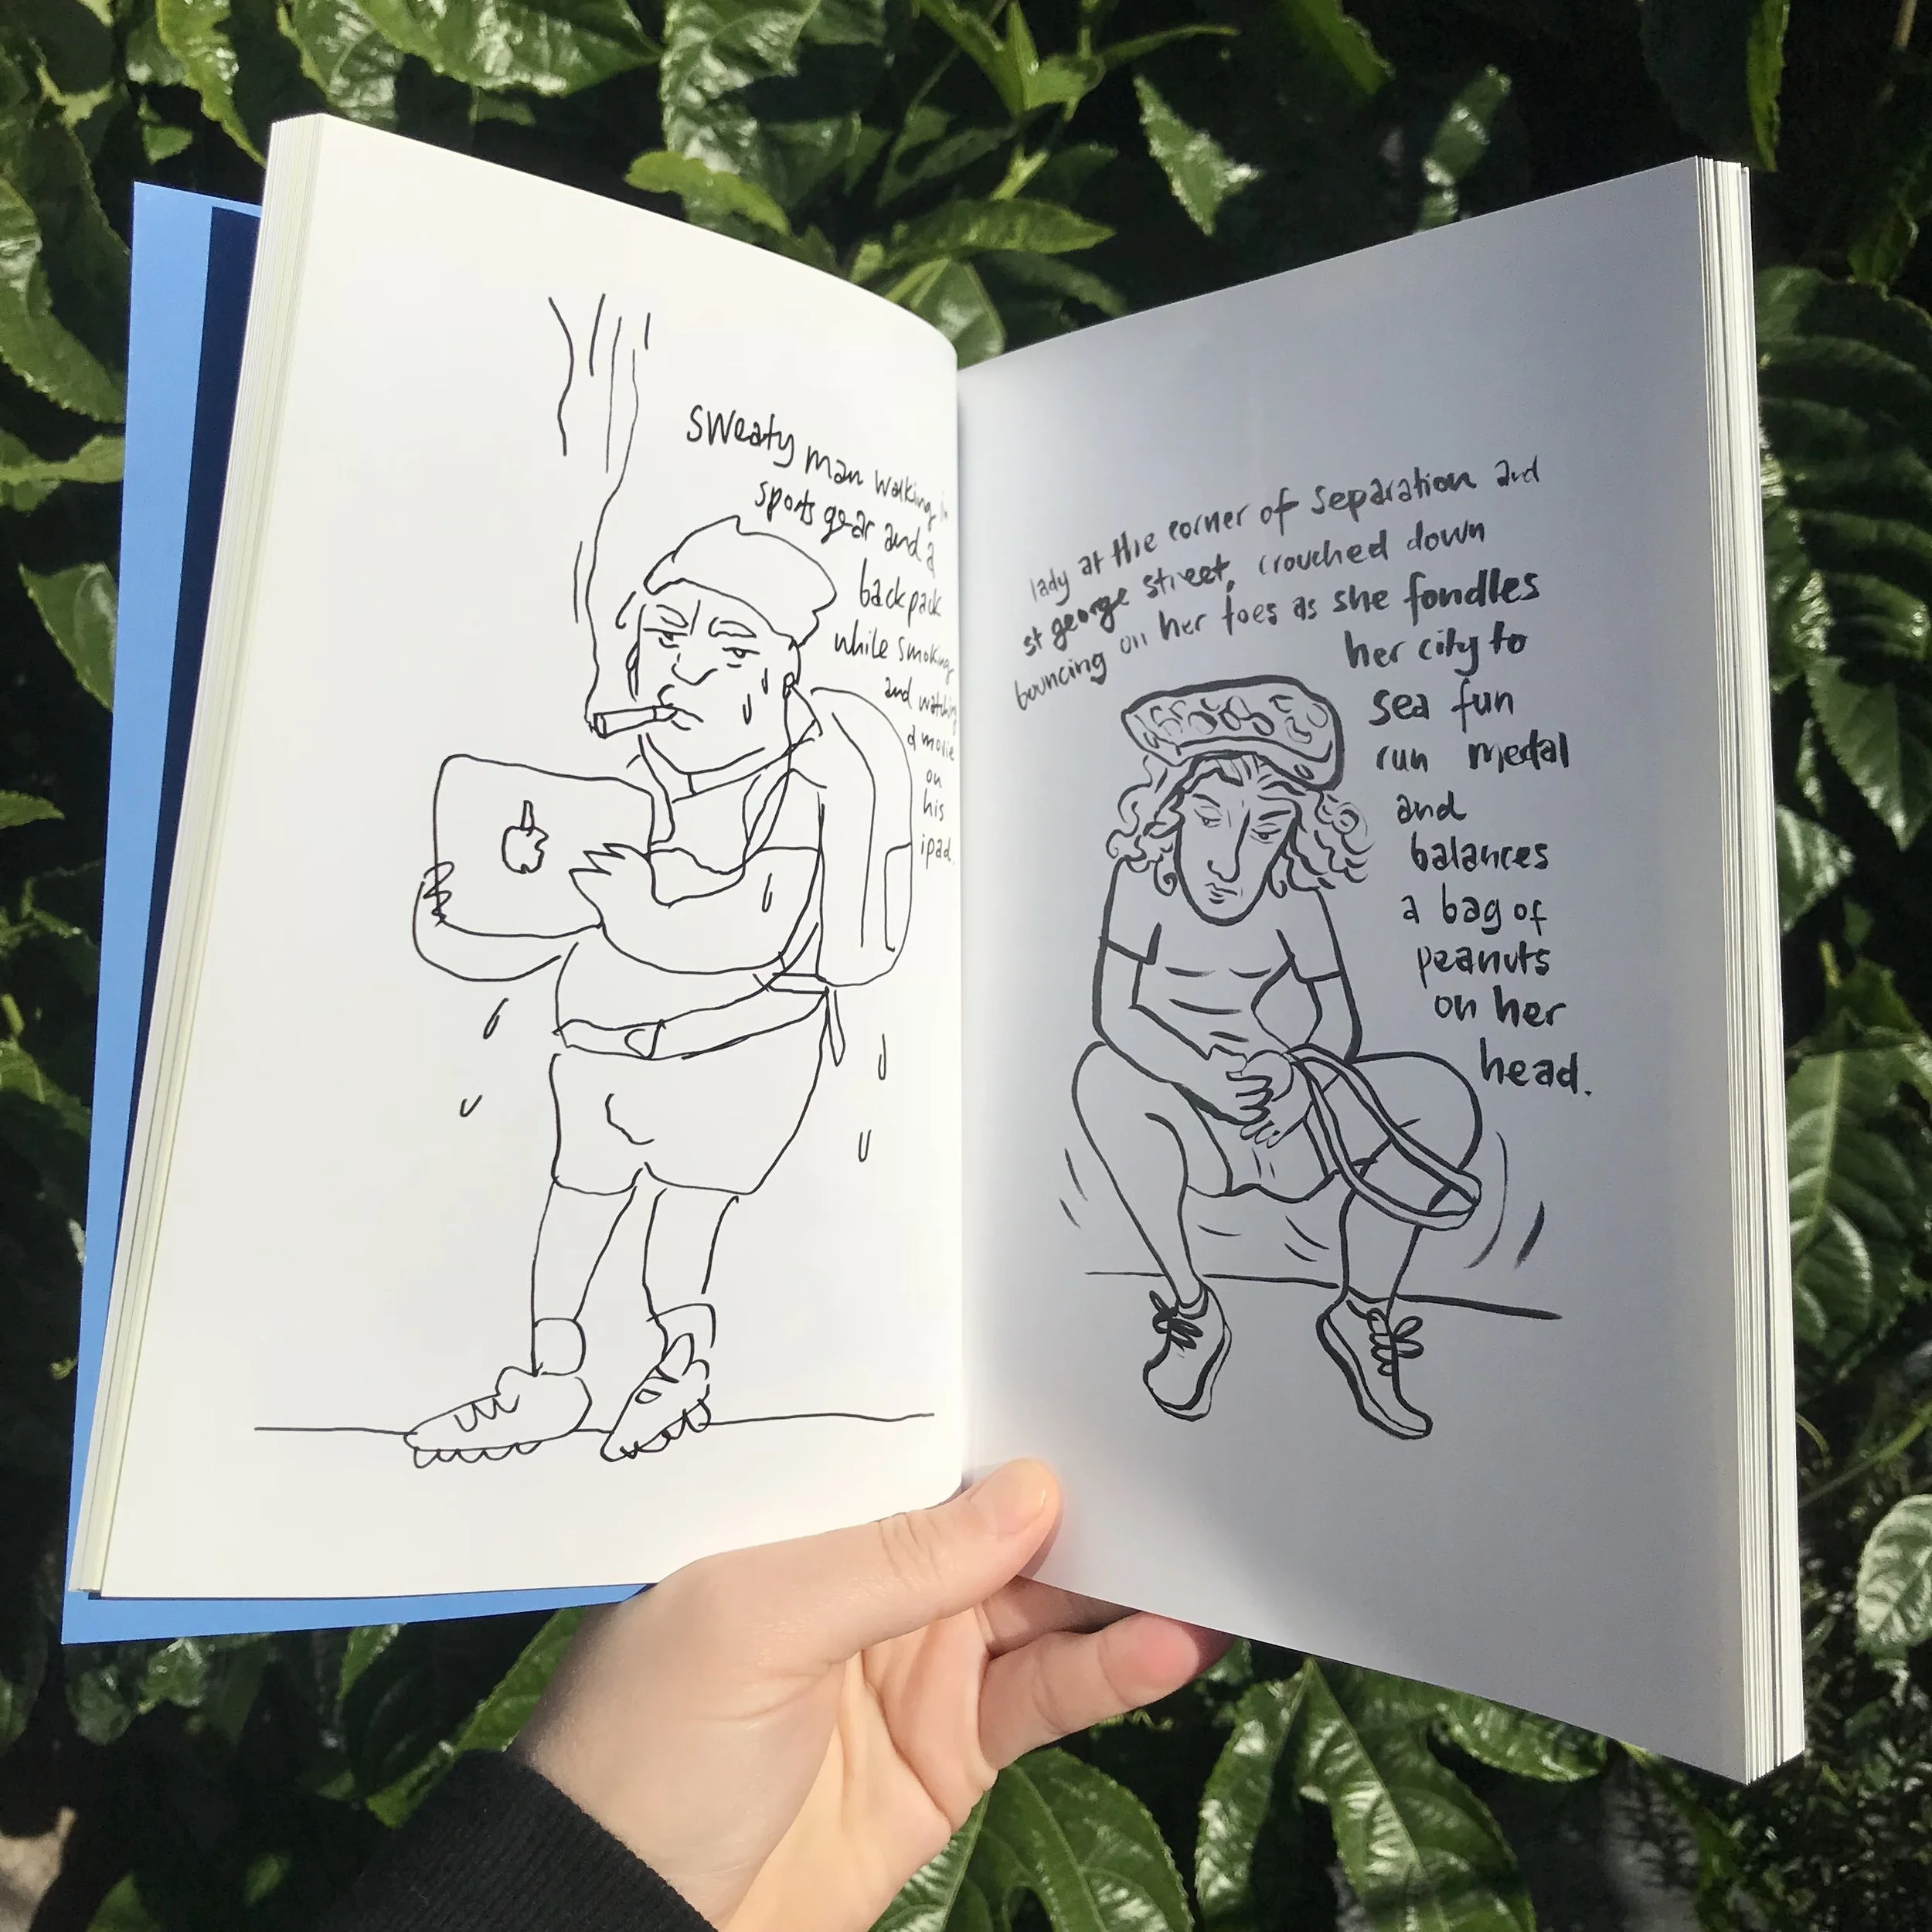 sweaty man walking in
sports gear and a
backpack
while smoking
and watching
a movie
on
his
ipad.
lady at the corner of separation and
st george street, crouched down
bouncing on her toes as she fondles
her city to
sea fun
run medal
and
balances
a bag of
peanuts
on her
head.